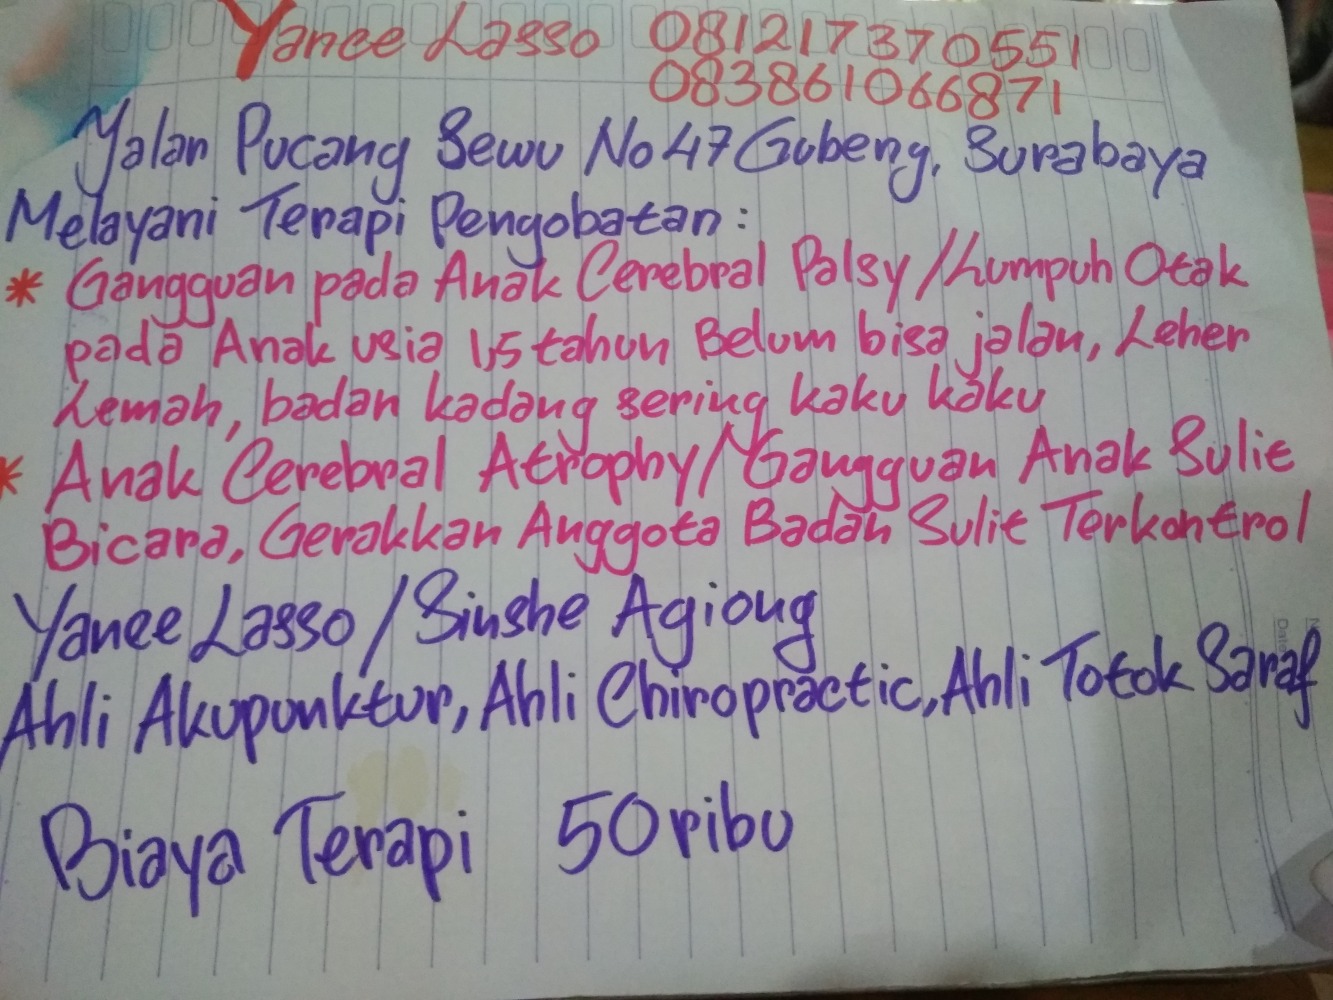 Yanee Lasso 081217370551
083861066871
Yalan Pucang Sewu No 47 Gubeng, Surabaya
Melayani Terapi Pengobatan :
* Gangguan pada Anak Cerebral Palsy / Lumpuh Otak
pada Anak usia 1,5 tahun Belum bisa jalan, Leher
Lemah, badan kadang sering kaku kaku
* Anak Cerebral Atrophy / Gangguan Anak Sulit
Bicara, Gerakkan Anggota Badan Sulit Terkontrol
Yanee Lasso / Sinshe Agiong
Ahli Akupunktur, Ahli Chiropractic, Ahli Totok Saraf
Biaya Terapi 50 ribu